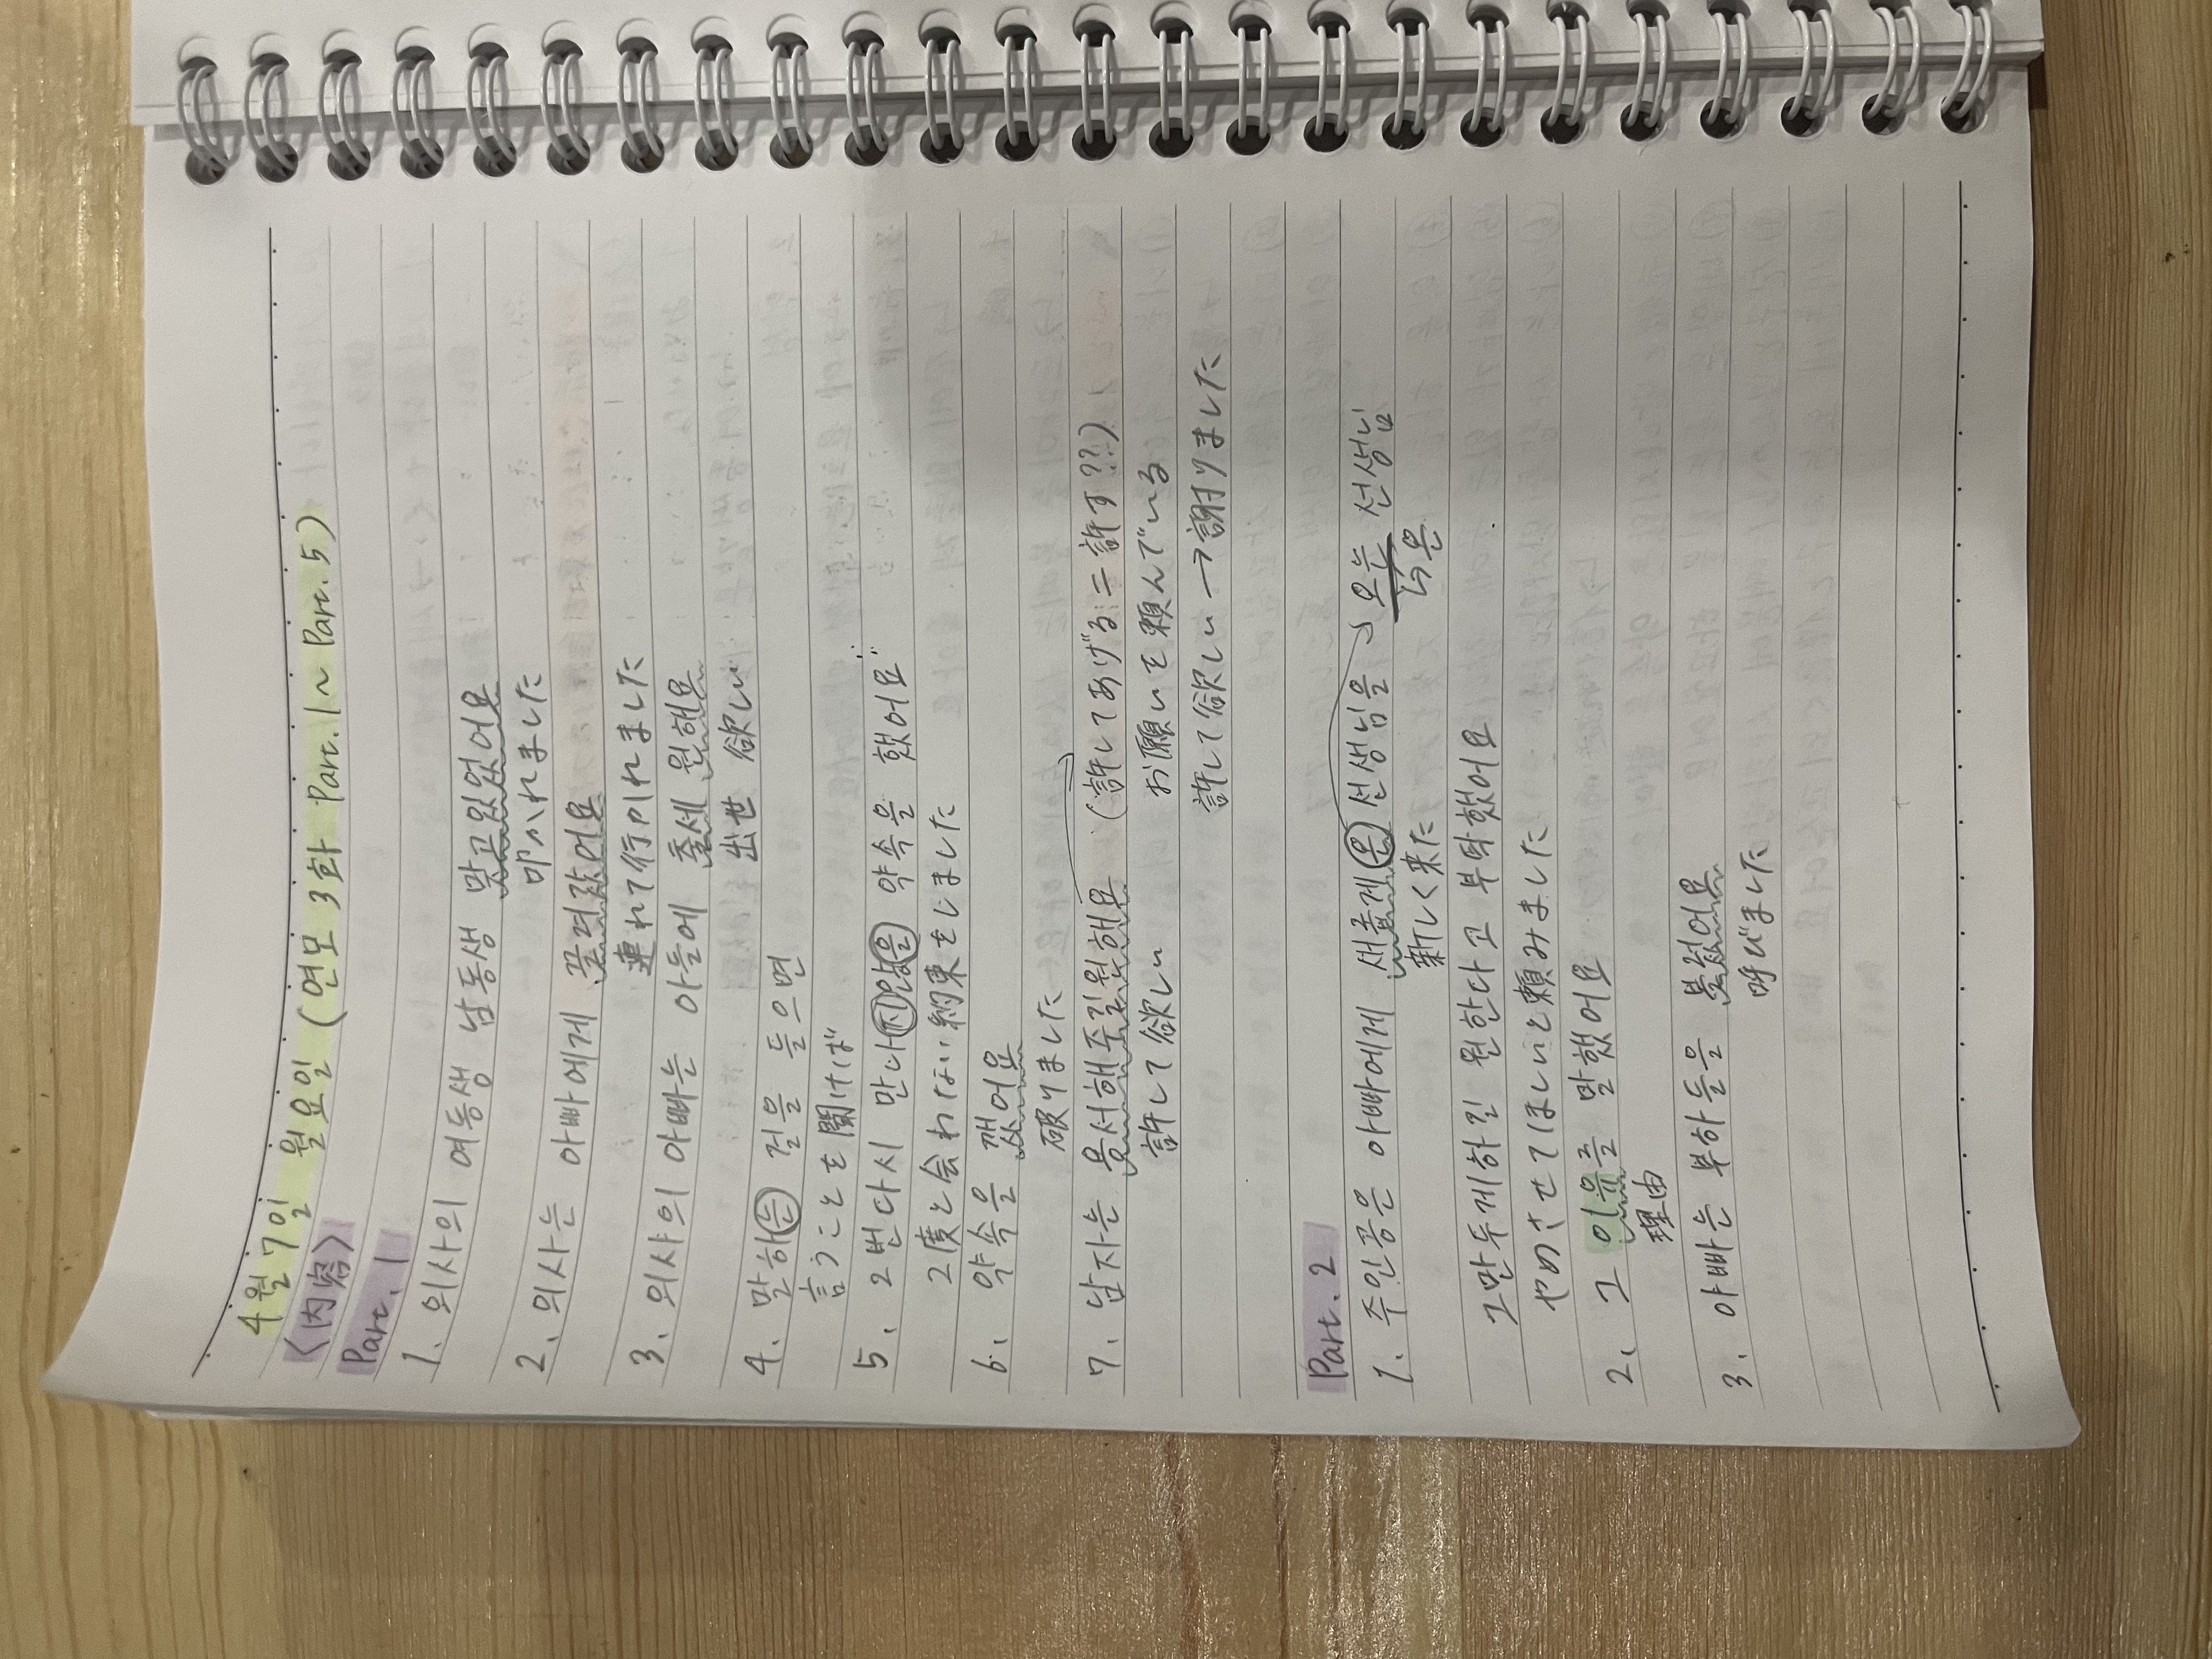 4월 7일 월요일 (연모 3화 Part.1~Part.5)
<内容>
Part.1
1. 의사의 여동생 남동생 맞고있었어요
叩かれました
2. 의사는 아빠에게 끌려갔어요
連れて行かれました
3. 의사의 아빠는 아들에 출세 원해요
出世 欲しい
4. 말하는 걸을 들으면
言うことを聞けば
5. 2번다시 만나지않을 약속을 했어요
2度と会わない約束をしました
6. 약속을 깼어요
破りました
7. 남자는 용서해주길원해요 (許してあげる = 許す??)
許して欲しい お願いを頼んでいる
許して欲しい → 謝りました
Part.2
1. 주인공은 아빠에게 새롭게온 선생님을 → 오는 선생님
新しく来た 너온
그만두게하길 원한다고 부탁했어요
やめさせてほしいと頼みました
2. 그 이유를 말했어요
理由
3. 아빠는 부하들을 불렀어요
呼びました